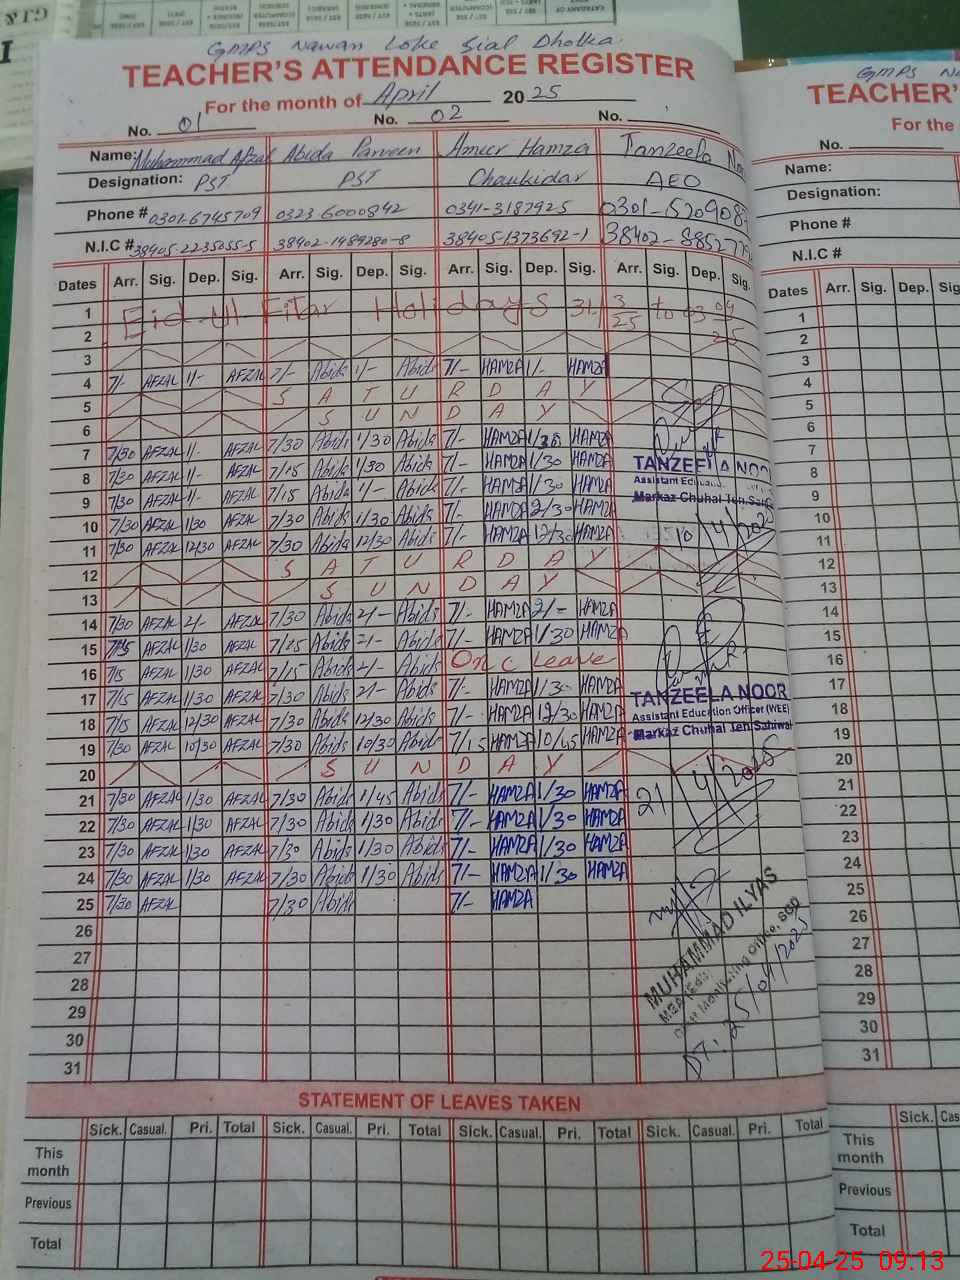 GMPS Nawan Loke Sial Dholka.
TEACHER'S ATTENDANCE REGISTER
For the month of April 2025
No. 01 No. 02 No.
Name: Muhammad Afzal Abida Parveen Ameer Hamza Tanzeela
Designation: PST PST Chaukidar AEO
Phone # 0301-6745709 0323-6000842 0341-3187925
N.I.C # 38405-2235055-5 38402-1489280-8 38405-1373692-1
Dates Arr. Sig. Dep. Sig. Arr. Sig. Dep. Sig. Arr. Sig. Dep. Sig. Arr. Sig. Dep. Sig.
1 Eid-ul-Fitar Holidays 31 3/25 to 03 04/25
2
3
4 7/- AFZAL 1/- AFZAL 7/- Abida 1/- Abida 7/- HAMZA 1/- HAMZA
5 SATURDAY
6 SUNDAY
7 7/30 AFZAL 1/- AFZAL 7/30 Abida 1/30 Abida 7/- HAMZA 1/30 HAMZA
8 7/30 AFZAL 1/- AFZAL 7/15 Abida 1/30 Abida 7/- HAMZA 1/30 HAMZA
9 7/30 AFZAL 1/- AFZAL 7/15 Abida 1/- Abida 7/- HAMZA 1/30 HAMZA
10 7/30 AFZAL 1/30 AFZAL 7/30 Abida 1/30 Abida 7/- HAMZA 2/30 HAMZA
11 7/30 AFZAL 12/30 AFZAL 7/30 Abida 12/30 Abida 7/- HAMZA 12/30 HAMZA
12 SATURDAY
13 SUNDAY
14 7/30 AFZAL 2/- AFZAL 7/30 Abida 2/- Abida 7/- HAMZA 2/- HAMZA
15 7/15 AFZAL 1/30 AFZAL 7/25 Abida 2/- Abida 7/- HAMZA 1/30 HAMZA
16 7/15 AFZAL 1/30 AFZAL 7/15 Abida 2/- Abida On C Leave
17 7/15 AFZAL 1/30 AFZAL 7/30 Abida 2/- Abida 7/- HAMZA 1/30 HAMZA
18 7/15 AFZAL 12/30 AFZAL 7/30 Abida 12/30 Abida 7/- HAMZA 12/30 HAMZA
19 7/30 AFZAL 10/30 AFZAL 7/30 Abida 10/30 Abida 7/15 HAMZA 10/45 HAMZA
20 SUNDAY
21 7/30 AFZAL 1/30 AFZAL 7/30 Abida 1/45 Abida 7/- HAMZA 1/30 HAMZA
22 7/30 AFZAL 1/30 AFZAL 7/30 Abida 1/30 Abida 7/- HAMZA 1/30 HAMZA
23 7/30 AFZAL 1/30 AFZAL 7/30 Abida 1/30 Abida 7/- HAMZA 1/30 HAMZA
24 7/30 AFZAL 1/30 AFZAL 7/30 Abida 1/30 Abida 7/- HAMZA 1/30 HAMZA
25 7/30 AFZAL 7/30 Abida 7/- HAMZA
26
27
28
29
30
31
TANZEELA NOOR
Markaz Chuhal Teh.
10/4/2025
TANZEELA NOOR
Assistant Education Officer (WEE)
Markaz Chuhal Teh. Sahiwal
21/4/2025
MUHAMMAD ILYAS
DT: 25/04/2025
STATEMENT OF LEAVES TAKEN
Sick. Casual. Pri. Total Sick. Casual. Pri. Total Sick. Casual. Pri. Total Sick. Casual. Pri. Total
This month
Previous
Total
GMPS
TEACHER'
For the
No.
Name:
Designation:
Phone #
N.I.C #
Dates Arr. Sig. Dep.
1
2
3
4
5
6
7
8
9
10
11
12
13
14
15
16
17
18
19
20
21
22
23
24
25
26
27
28
29
30
31
Sick.
This month
Previous
Total
25-04-25 09:13